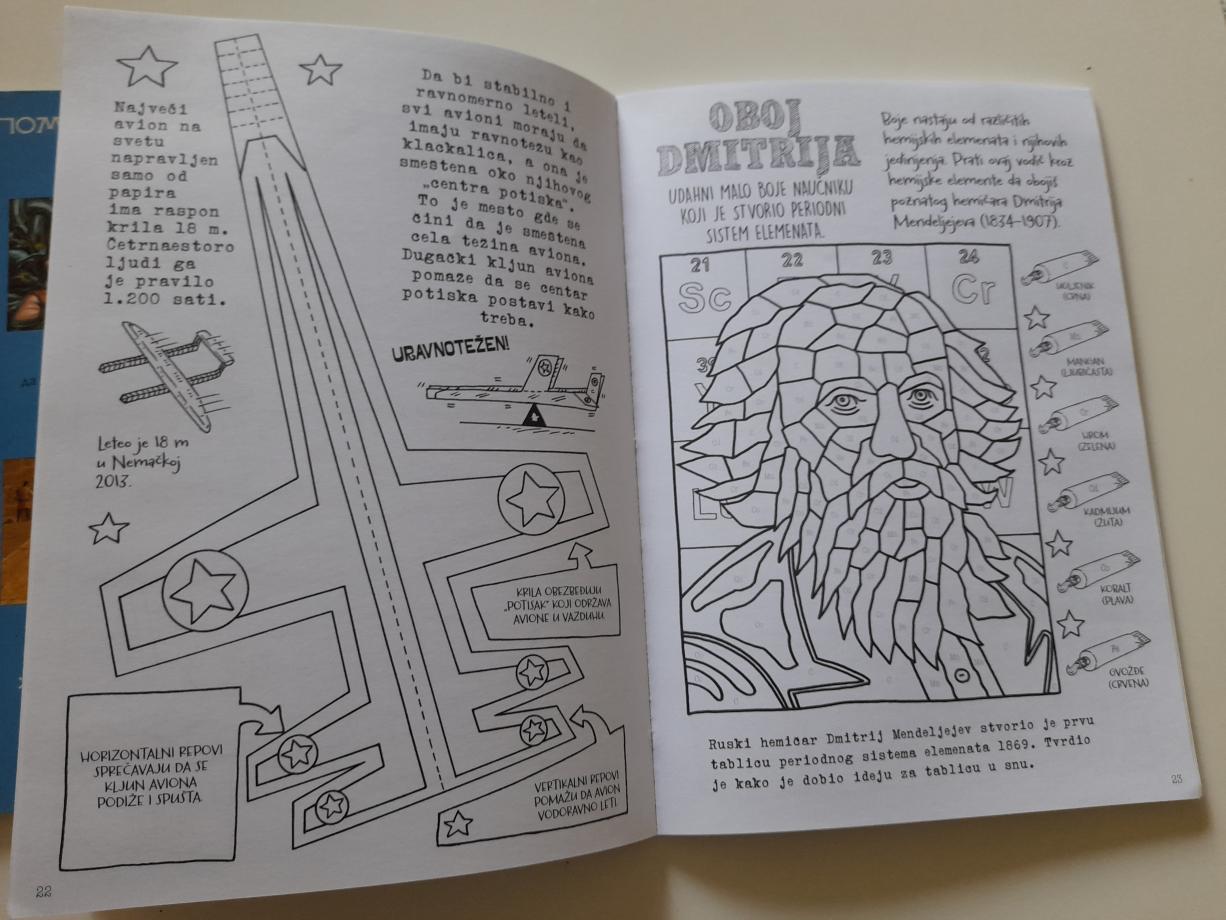 Najveći
avion na
svetu
napravljen
samo od
papira
ima raspon
krila 18 m.
Četrnaestoro
ljudi ga
je pravilo
1.200 sati.
Leteo je 18 m
u Nemačkoj
2013.
Da bi stabilno i
ravnomerno leteli,
svi avioni moraju da
imaju ravnotežu kao
klackalica, a ona je
smeštena oko njihovog
„centra potiska“.
To je mesto gde se
čini da je smeštena
cela težina aviona.
Dugački kljun aviona
pomaže da se centar
potiska postavi kako
treba.
URAVNOTEŽEN!
KRILA OBEZBEĐUJU
„POTISAK“ KOJI ODRŽAVA
AVIONE U VAZDUHU.
HORIZONTALNI REPOVI
SPREČAVAJU DA SE
KLJUN AVIONA
PODIŽE I SPUŠTA.
VERTIKALNI REPOVI
POMAŽU DA AVION
VODORAVNO LETI.
22
OBOJ
DMITRIJA
UDAHNI MALO BOJE NAUČNIKU
KOJI JE STVORIO PERIODNI
SISTEM ELEMENATA.
Boje nastaju od različitih
hemijskih elemenata i njihovih
jedinjenja. Prati ovaj vodič kroz
hemijske elemente da obojiš
poznatog hemičara Dmitrija
Mendeljejeva (1834–1907).
21 22 23 24
Sc Cr
39
W
C
UGLJENIK
(CRNA)
Mn
MANGAN
(LJUBIČASTA)
Cr
HROM
(ZELENA)
Cd
KADMIJUM
(ŽUTA)
Co
KOBALT
(PLAVA)
Fe
GVOŽĐE
(CRVENA)
Ruski hemičar Dmitrij Mendeljejev stvorio je prvu
tablicu periodnog sistema elemenata 1869. Tvrdio
je kako je dobio ideju za tablicu u snu.
23